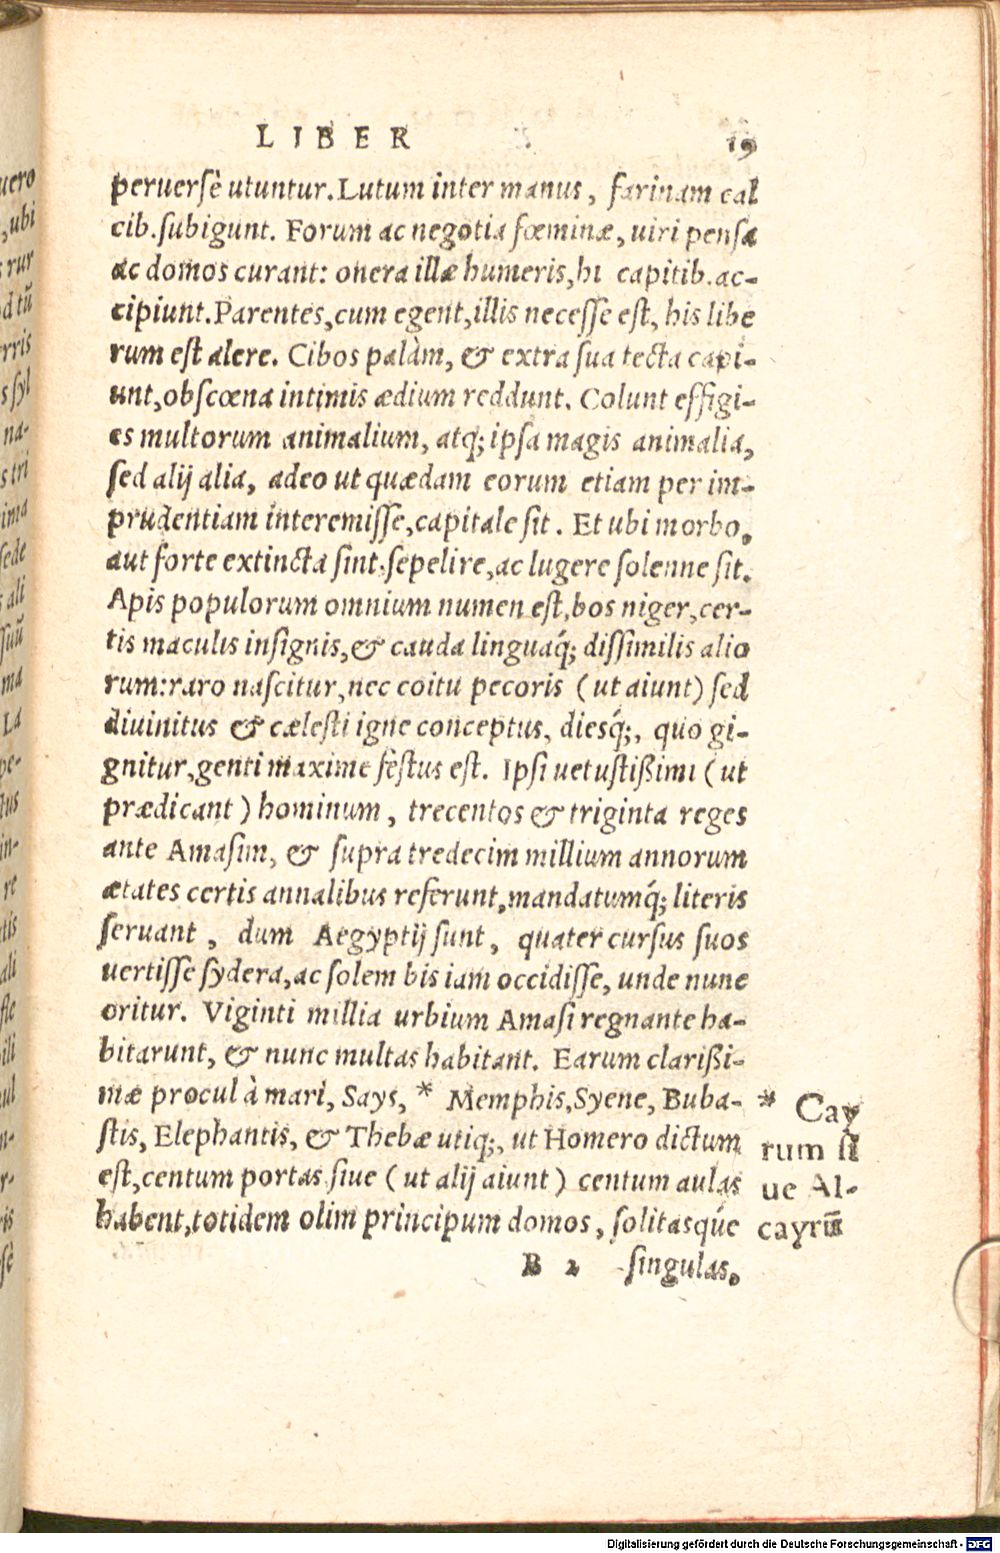 LIBER 19
peruersè utuntur. Lutum inter manus, farinam cal
cib. subigunt. Forum ac negotia fœminæ, uiri pensa
ac domos curant: onera illæ humeris, hi capitib. ac-
cipiunt. Parentes, cum egent, illis necesse est, his libe
rum est alere. Cibos palàm, & extra sua tecta capi-
unt, obscœna intimis ædium reddunt. Colunt effigi-
es multorum animalium, atq; ipsa magis animalia,
sed alij alia, adeo ut quædam eorum etiam per im-
prudentiam interemisse, capitale sit. Et ubi morbo,
aut forte extincta sint, sepelire, ac lugere solenne sit.
Apis populorum omnium numen est, bos niger, cer-
tis maculis insignis, & cauda linguaq́; dissimilis alio
rum: raro nascitur, nec coitu pecoris (ut aiunt) sed
diuinitus & cælesti igne conceptus, diesq́;, quo gi-
gnitur, genti maxime festus est. Ipsi uetustißimi (ut
prædicant) hominum, trecentos & triginta reges
ante Amasim, & supra tredecim millium annorum
ætates certis annalibus referunt, mandatumq́; literis
seruant, dum Aegyptij sunt, quater cursus suos
uertisse sydera, ac solem bis iam occidisse, unde nunc
oritur. Viginti millia urbium Amasi regnante ha-
bitarunt, & nunc multas habitant. Earum clarißi-
mæ procul à mari, Says, * Memphis, Syene, Buba-
stis, Elephantis, & Thebæ utiq;, ut Homero dictum
est, centum portas siue (ut alij aiunt) centum aulas
habent, totidem olim principum domos, solitasqúe
B 2 singulas,
* Cay
rum si
ue Al-
cayrū
uero
, ubi
rur
d tū
rris
s syl
na-
s tri
ima
sede
ali
suū
ma
La
pe-
tus
in-
re
tis
ali
ste
ili
ul
n-
r-
is
sè
Digitalisierung gefördert durch die Deutsche Forschungsgemeinschaft - DFG